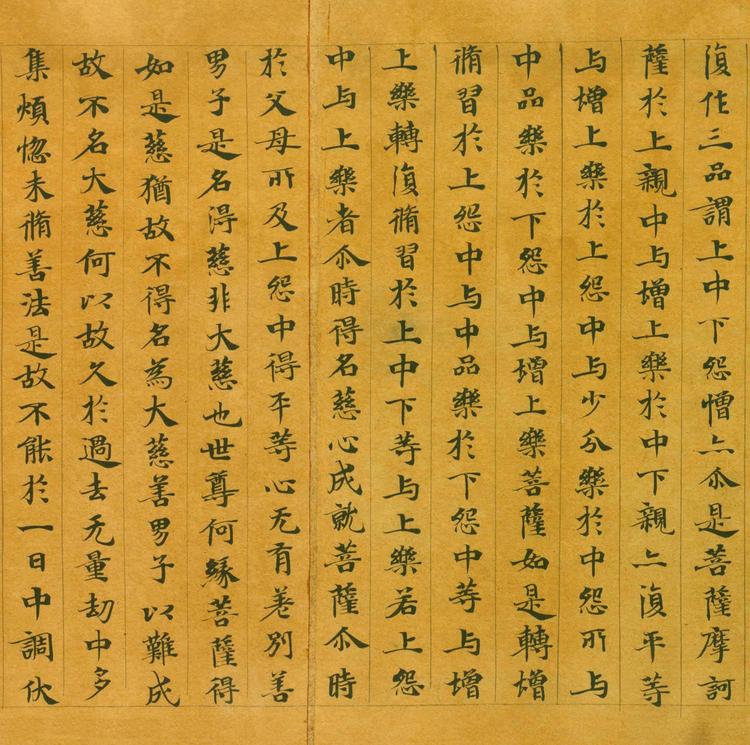 復作三品謂上中下怨憎亠尒是菩薩摩訶
薩於上親中与增上樂於中下親亠復平等
与增上樂於上怨中与少分樂於中怨所与
中品樂於下怨中与增上樂菩薩如是轉增
脩習於上怨中与中品樂於下怨中等与增
上樂轉復脩習於上中下等与上樂若上怨
中与上樂者尒時得名慈心成就菩薩尒時
於父母所及上怨中得平等心无有差別善
男子是名得慈非大慈也世尊何緣菩薩得
如是慈猶故不得名為大慈善男子以難成
故不名大慈何以故久於過去无量劫中多
集煩惚未脩善法是故不能於一日中調伏